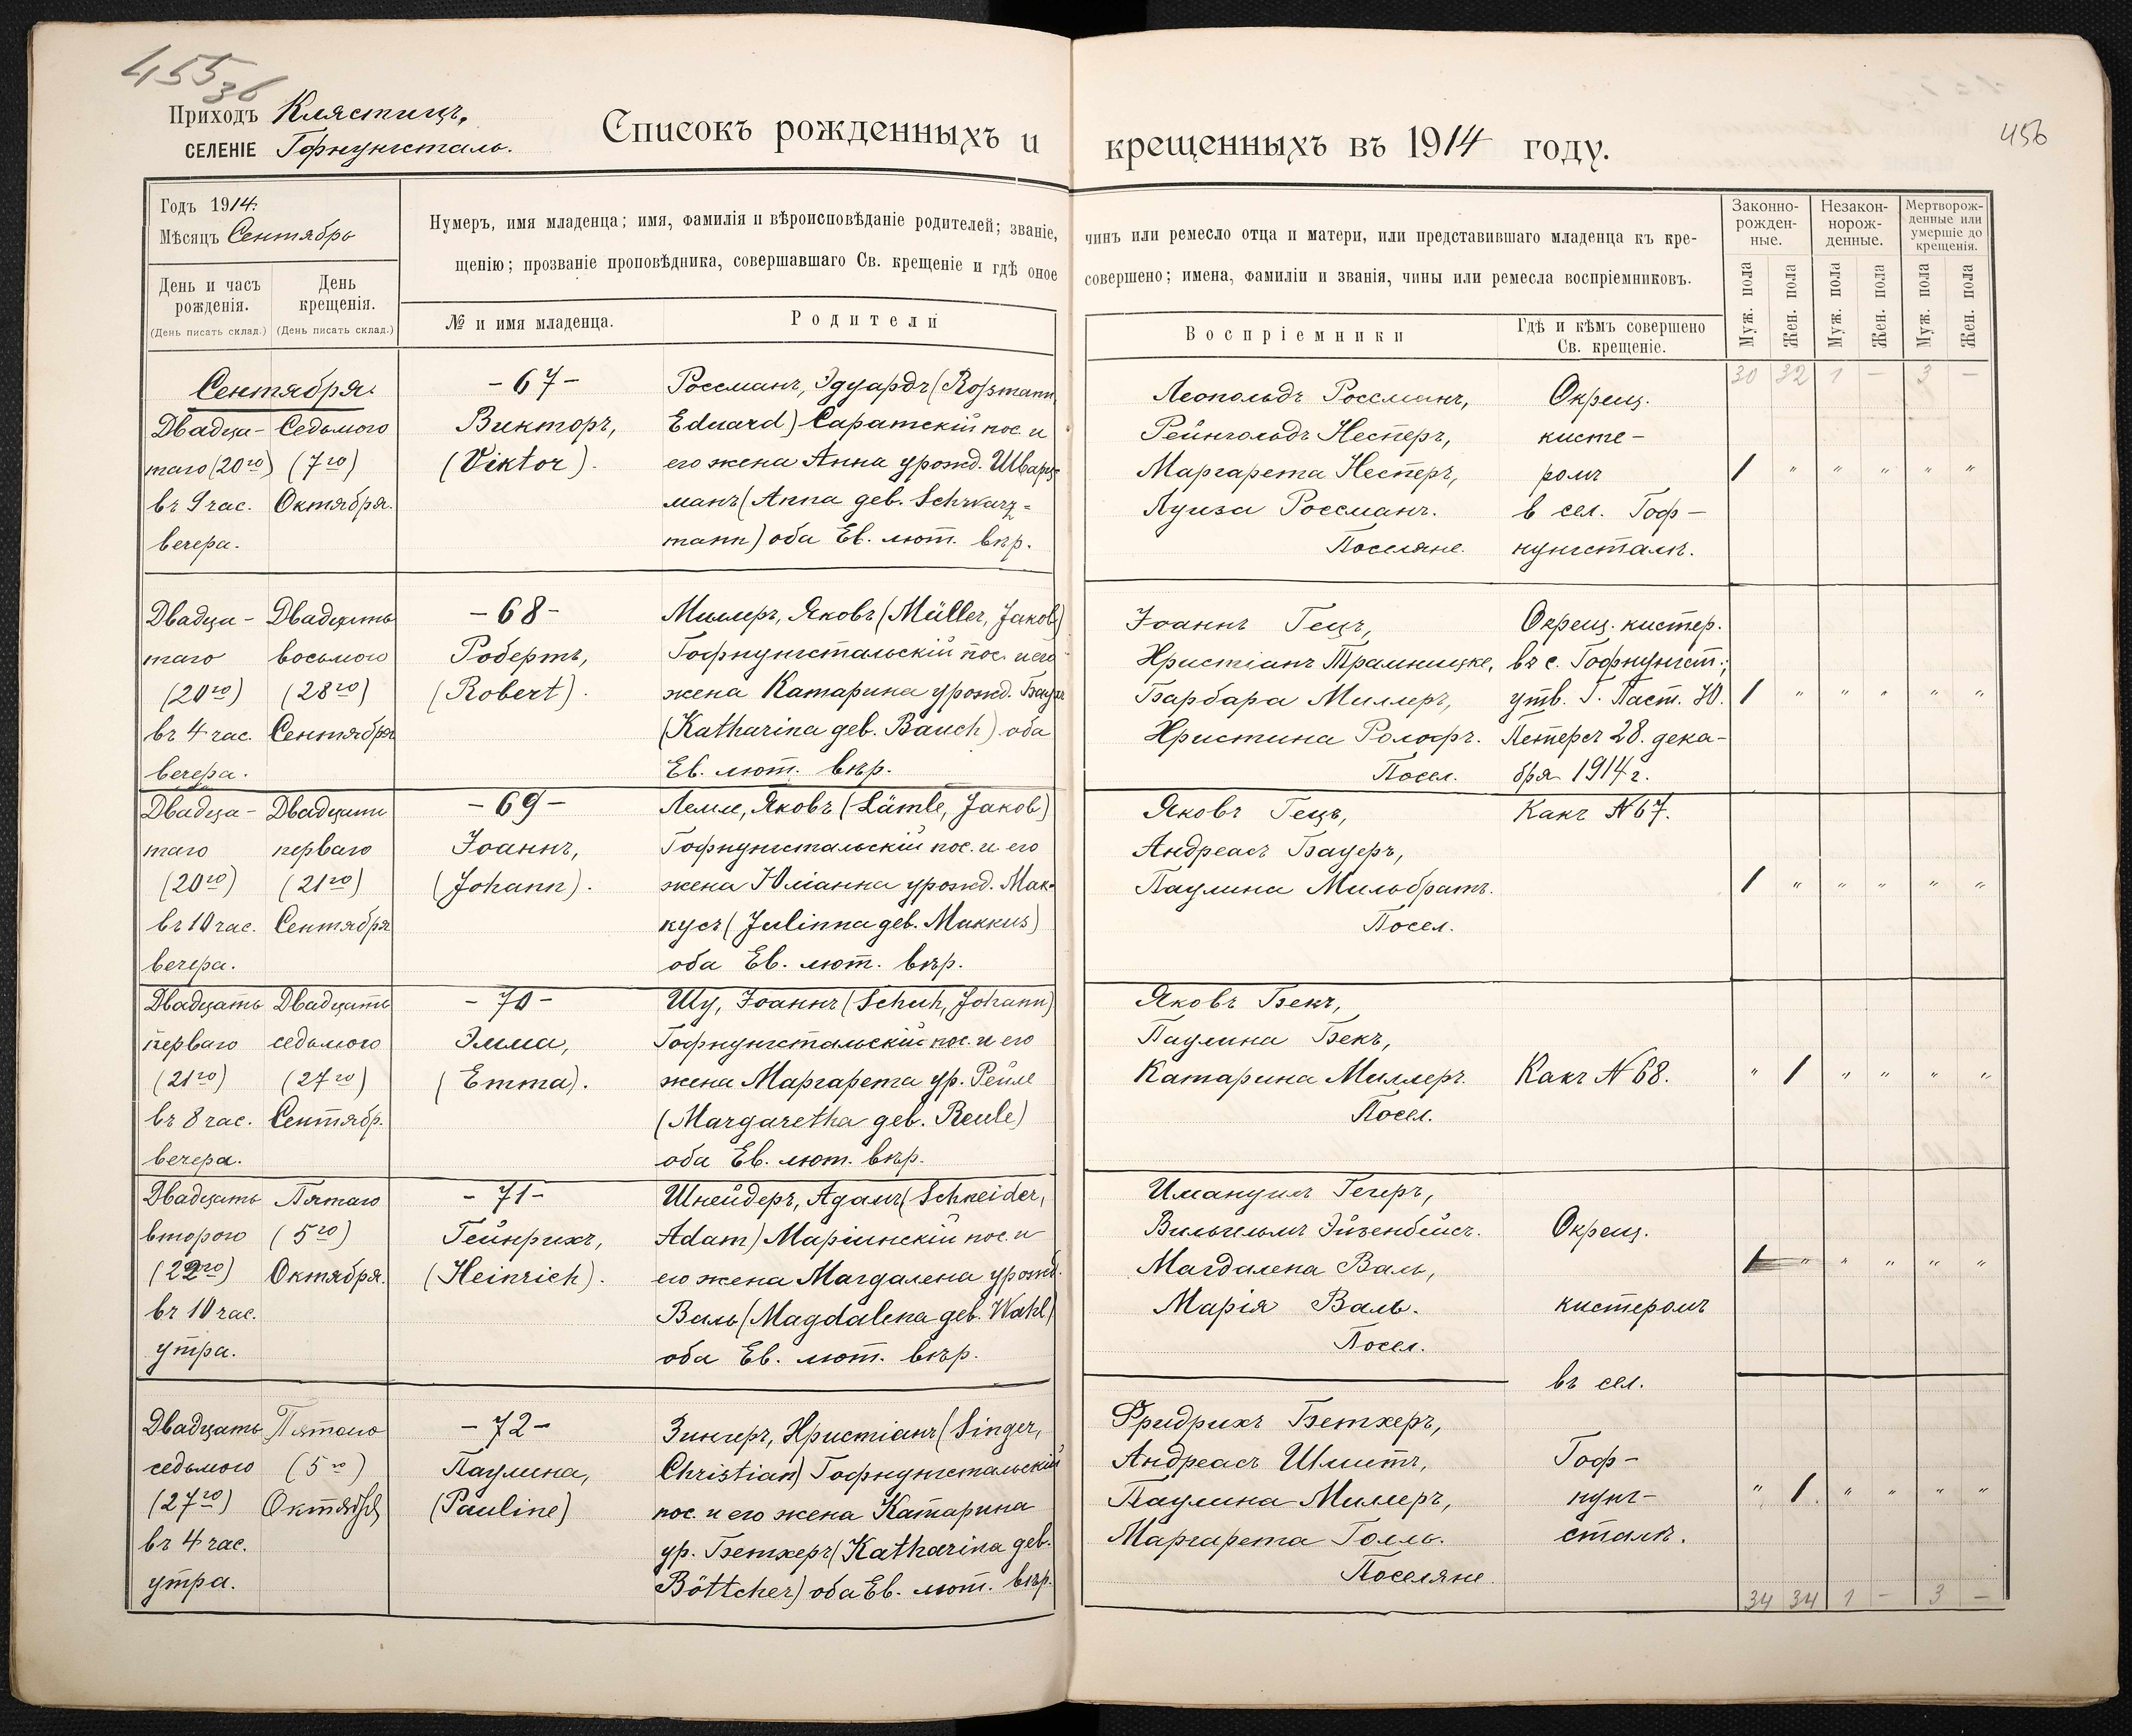 455
36
456
Приходъ Клястицъ,
СЕЛЕНІЕ Гофнунгсталь.
Списокъ рожденныхъ и крещенныхъ въ 1914 году.
Годъ 1914.
Мѣсяцъ Сентябрь
Нумеръ, имя младенца; имя, фамилія и вѣроисповѣданіе родителей; званіе, чинъ или ремесло отца и матери, или представившаго младенца къ кре-
щенію; прозваніе проповѣдника, совершавшаго Св. крещеніе и гдѣ оное совершено; имена, фамиліи и званія, чины или ремесла воспріемниковъ.
День и часъ рожденія.
(День писать склад.)
День крещенія.
(День писать склад.)
№ и имя младенца.
Родители
Воспріемники
Гдѣ и кѣмъ совершено
Св. крещеніе.
Законно-
рожден-
ные.
Незакон-
норож-
денные.
Мертворож-
денные или
умершіе до
крещенія.
Муж. пола
Жен. пола
Муж. пола
Жен. пола
Муж. пола
Жен. пола
30 32 1 – 3 –
Сентября.
Двадца-
таго (20го)
въ 9 час.
вечера.
Седьмого
(7го)
Октября.
- 67 -
Викторъ,
(Viktor).
Россманъ, Эдуардъ (Roßmann,
Eduard) Саратскій пос. и
его жена Анна урожд. Шварц-
манъ (Anna geb. Schwarz-
mann) оба Ев. лют. вѣр.
Леопольдъ Россманъ,
Рейнгольдъ Нестеръ,
Маргарета Нестеръ,
Луиза Россманъ.
Поселяне.
Окрещ.
кисте-
ромъ
в сел. Гоф-
нунгсталѣ.
1 " " " " "
Двадца-
таго
(20го)
въ 4 час.
вечера.
Двадцать
восьмого
(28го)
Сентября
- 68 -
Робертъ,
(Robert).
Миллеръ, Яковъ (Müller, Jakob)
Гофнунгстальскій пос. и его
жена Катарина урожд. Баухъ
(Katharina geb. Bauch) оба
Ев. лют. вѣр.
Іоаннъ Гецъ,
Христіанъ Трамницке,
Барбара Миллеръ,
Христина Ролофъ.
Посел.
Окрещ. кистер.
въ с. Гофнунгст.;
утв. Г. Паст. Ю.
Петерсъ 28. дека-
бря 1914 г.
1 " " " " "
Двадца-
таго
(20го)
въ 10 час.
вечера.
Двадцати
перваго
(21го)
Сентября
- 69 -
Іоаннъ,
(Johann).
Лемле, Яковъ (Lämle, Jakob)
Гофнунгстальскій пос. и его
жена Юліанна урожд. Мак-
кусъ (Julinna geb. Makkus)
оба Ев. лют. вѣр.
Яковъ Гецъ,
Андреасъ Бауеръ,
Паулина Мильбратъ.
Посел.
Какъ N 67.
1 " " " " "
Двадцать
перваго
(21го)
въ 8 час.
вечера.
Двадцать
седьмого
(27го)
Сентябр.
- 70 -
Эмма,
(Emma).
Шу, Іоаннъ (Schuh, Johann)
Гофнунгстальскій пос. и его
жена Маргарета ур. Рейле
(Margaretha geb. Reule)
оба Ев. лют. вѣр.
Яковъ Бекъ,
Паулина Бекъ,
Катарина Миллеръ.
Посел.
Какъ N 68.
" 1 " " " "
Двадцать
второго
(22го)
въ 10 час.
утра.
Пятаго
(5го)
Октября.
- 71 -
Гейнрихъ,
(Heinrich).
Шнейдеръ, Адамъ (Schneider,
Adam) Маріинскій пос. и
его жена Магдалена урожд.
Валь (Magdalena geb. Wahl)
оба Ев. лют. вѣр.
Имануилъ Гегеръ,
Вильгельмъ Эйзенбейсъ.
Магдалена Валь,
Марія Валь.
Посел.
Окрещ.
кистеромъ
въ сел.
1 " " " " "
Двадцать
седьмого
(27го)
въ 4 час.
утра.
Пятаго
(5го)
Октября
- 72 -
Паулина,
(Pauline)
Зингеръ, Христіанъ (Singer,
Christian) Гофнунгстальскій
пос. и его жена Катарина
ур. Бетхеръ (Katharina geb.
Böttcher) оба Ев. лют. вѣр.
Фридрихъ Бетхеръ,
Андреасъ Шмитъ,
Паулина Миллеръ,
Маргарета Голль.
Поселяне.
Гоф-
нунг-
сталѣ.
" 1. " " " "
34 34 1 – 3 –